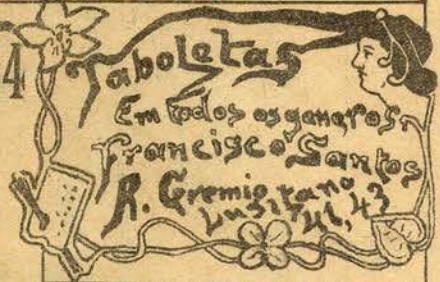 4
Taboletas
Em todos os generos,
Francisco Santos
R. Gremio
Luzitano
41, 43